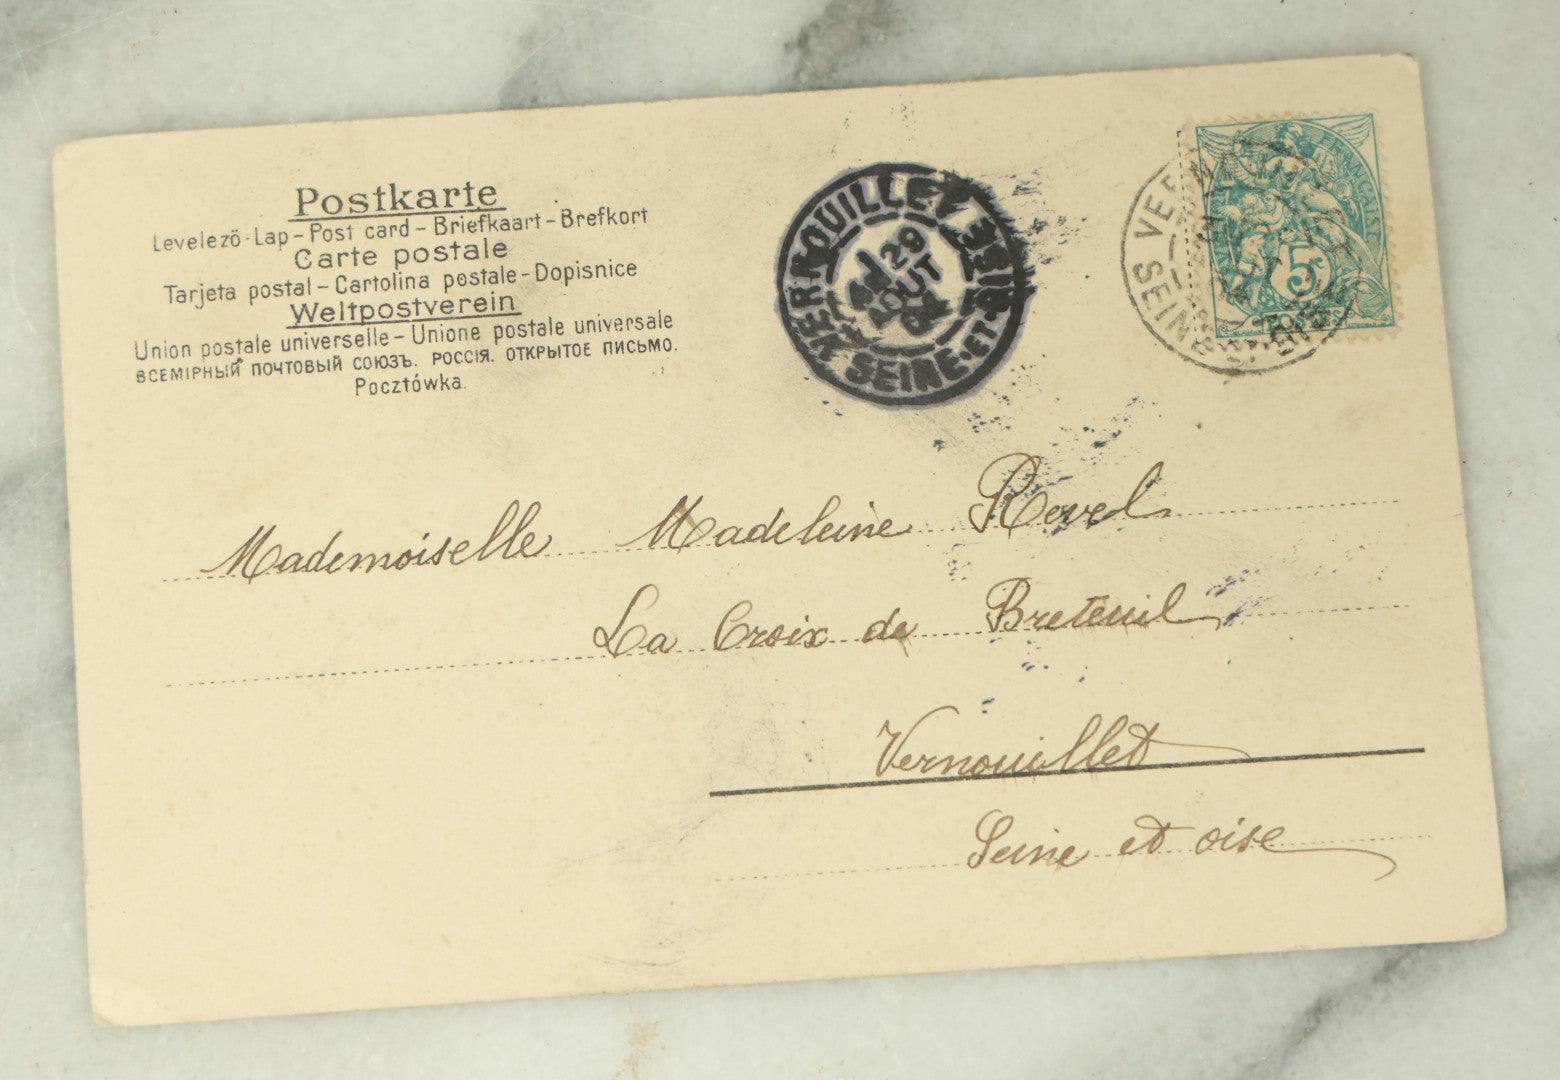 Postkarte
Levelező-Lap – Post card – Briefkaart – Brefkort
Carte postale
Tarjeta postal – Cartolina postale – Dopisnice
Weltpostverein
Union postale universelle – Unione postale universale
ВСЕМІРНЫЙ ПОЧТОВЫЙ СОЮЗЪ. РОССІЯ. ОТКРЫТОЕ ПИСЬМО.
Pocztówka.
29
AOUT
SEINE-ET-OISE
5
Mademoiselle Madeleine Revel
La Croix de Breteuil
Vernouillet
Seine et oise